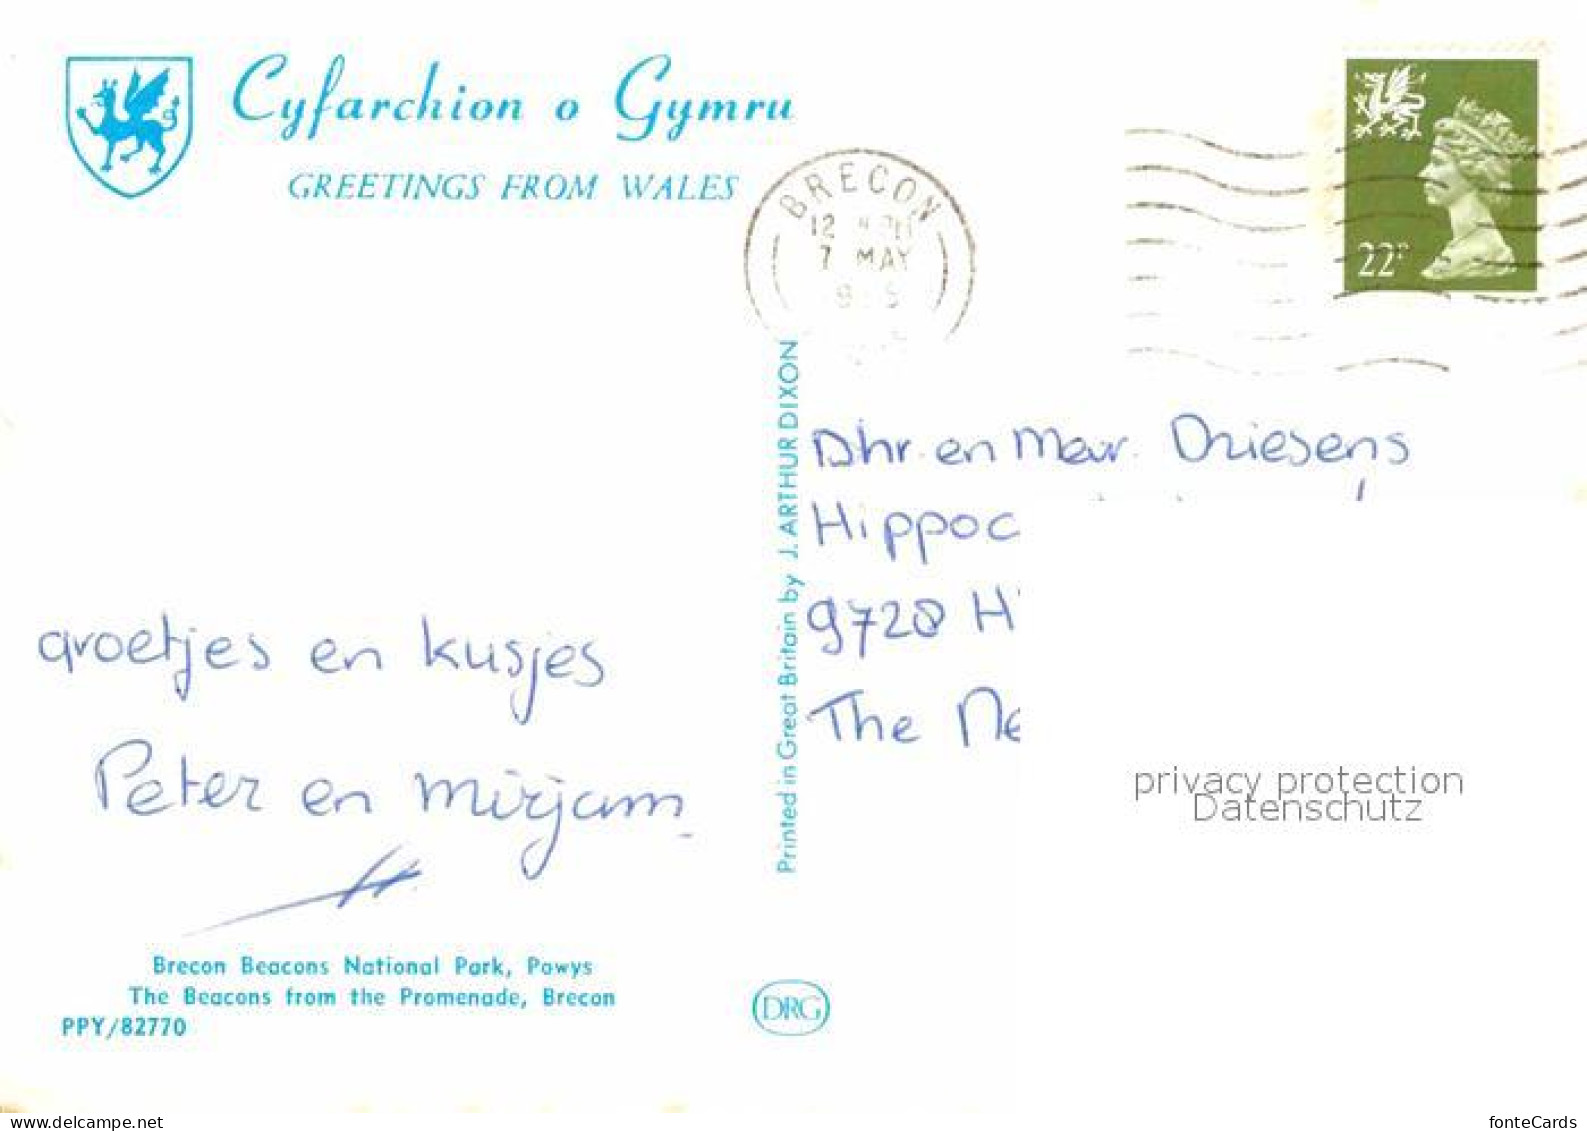 Cyfarchion o Gymru
GREETINGS FROM WALES
BRECON
12
7 MAY
22P
Printed in Great Britain by J. ARTHUR DIXON
Dhr. en Mevr. Driesens
Hippoc
9728 H
The Ne
groetjes en kusjes
Peter en Mirjam
privacy protection
Datenschutz
Brecon Beacons National Park, Powys
The Beacons from the Promenade, Brecon
PPY/82770
DRG
www.delcampe.net
fonteCards